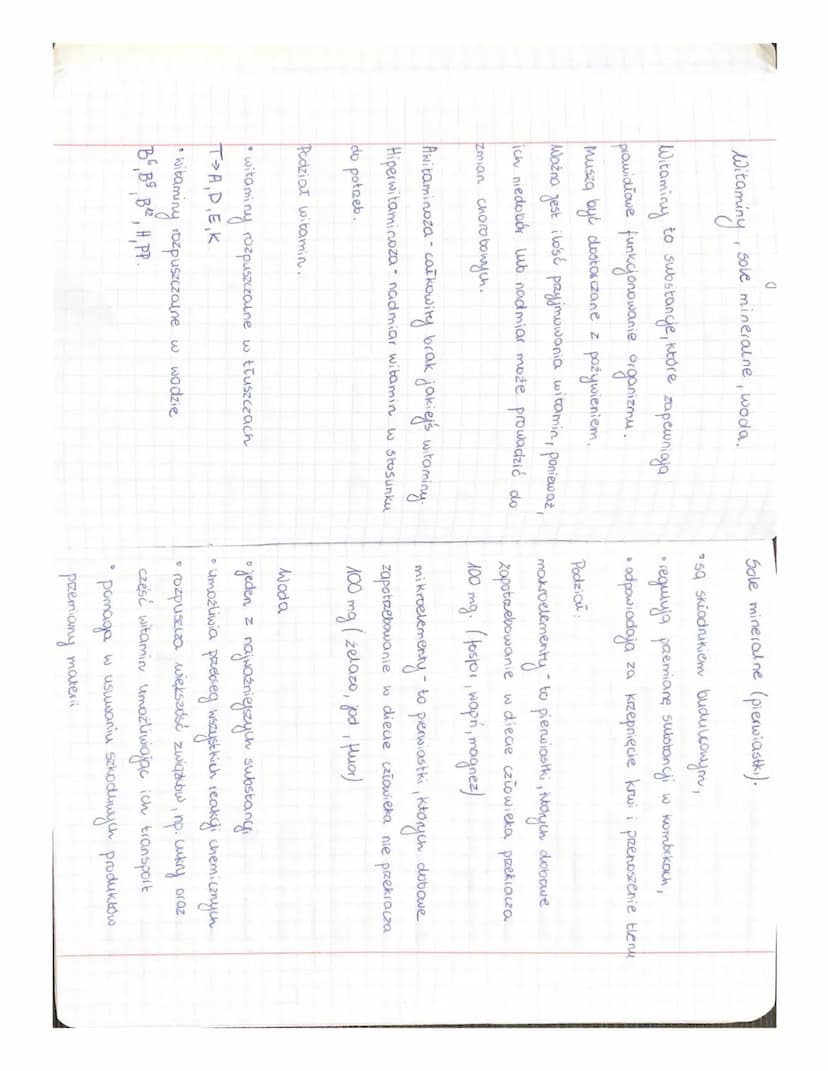 Witaminy, sole mineralne, woda.
Witaminy to substancje, które zapewniają
prawidłowe funkcjonowanie organizmu.
Muszą być dostarczane z pożywieniem.
Ważna jest ilość przyjmowania witamin, ponieważ,
ich niedobór lub nadmiar może prowadzić do
zmian chorobowych.
Awitaminoza - całkowity brak jakiejś witaminy.
Hiperwitaminoza - nadmiar witamin w stosunku
do potrzeb.
Podział witamin.
• witaminy rozpuszczalne w tłuszczach
T → A, D, E, K
• witaminy rozpuszczalne w wodzie
B⁶, B⁹, B¹², H, PP.
Sole mineralne (pierwiastki).
• są składnikiem budulcowym,
• regulują przemianę substancji w komórkach,
• odpowiadają za krzepnięcie krwi i przenoszenie tlenu
Podział:
makroelementy - to pierwiastki, których dobowe
zapotrzebowanie w diecie człowieka przekracza
100 mg. (fosfor, wapń, magnez)
mikroelementy - to pierwiastki, których dobowe
zapotrzebowanie w diecie człowieka nie przekracza
100 mg (żelazo, jod, fluor)
Woda
• jeden z najważniejszych substancji
• umożliwia przebieg wszystkich reakcji chemicznych
• rozpuszcza większość związków, np. cukry oraz
część witamin umożliwiając ich transport
• pomaga w usuwaniu szkodliwych produktów
przemiany materii